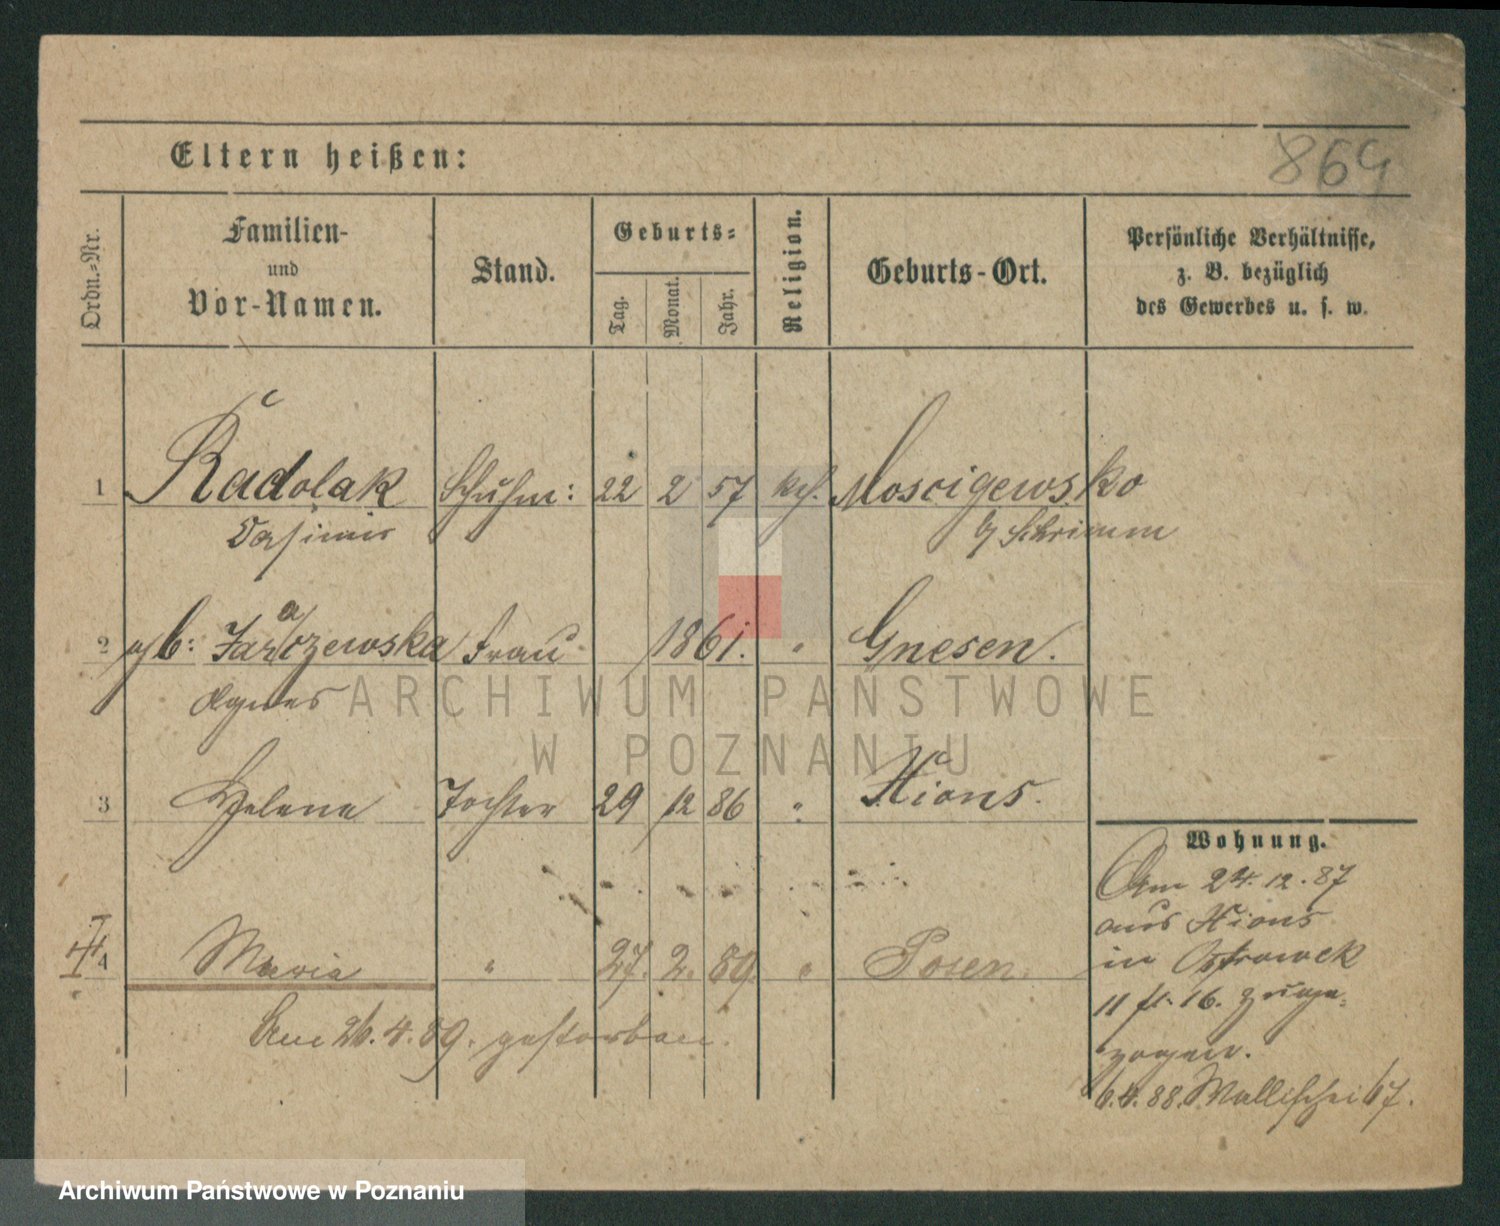 864
Eltern heißen:
Ordn.-Nr.
Familien-
und
Vor-Namen.
Stand.
Geburts-
Tag.
Monat.
Jahr.
Religion.
Geburts-Ort.
Persönliche Verhältnisse,
z. B. bezüglich
des Gewerbes u. s. w.
1 Radolak Schuhm: 22 2 57 kth. Moscigewsko
Casimir b/ Schrimm
2 geb: Jaraczewska Frau 1861. " Gnesen.
Agnes
ARCHIWUM PAŃSTWOWE
W POZNANIU
3 Helena Tochter 29 12 86 " Xions.
4 Maria " 27. 2. 89. " Posen.
Am 26.4.89. gestorben.
Wohnung.
Am 24.12.87
aus Xions
in Ostrowek
11 fl. 16. zuge-
zogen.
6.4.88. Wallischei 67.
Archiwum Państwowe w Poznaniu